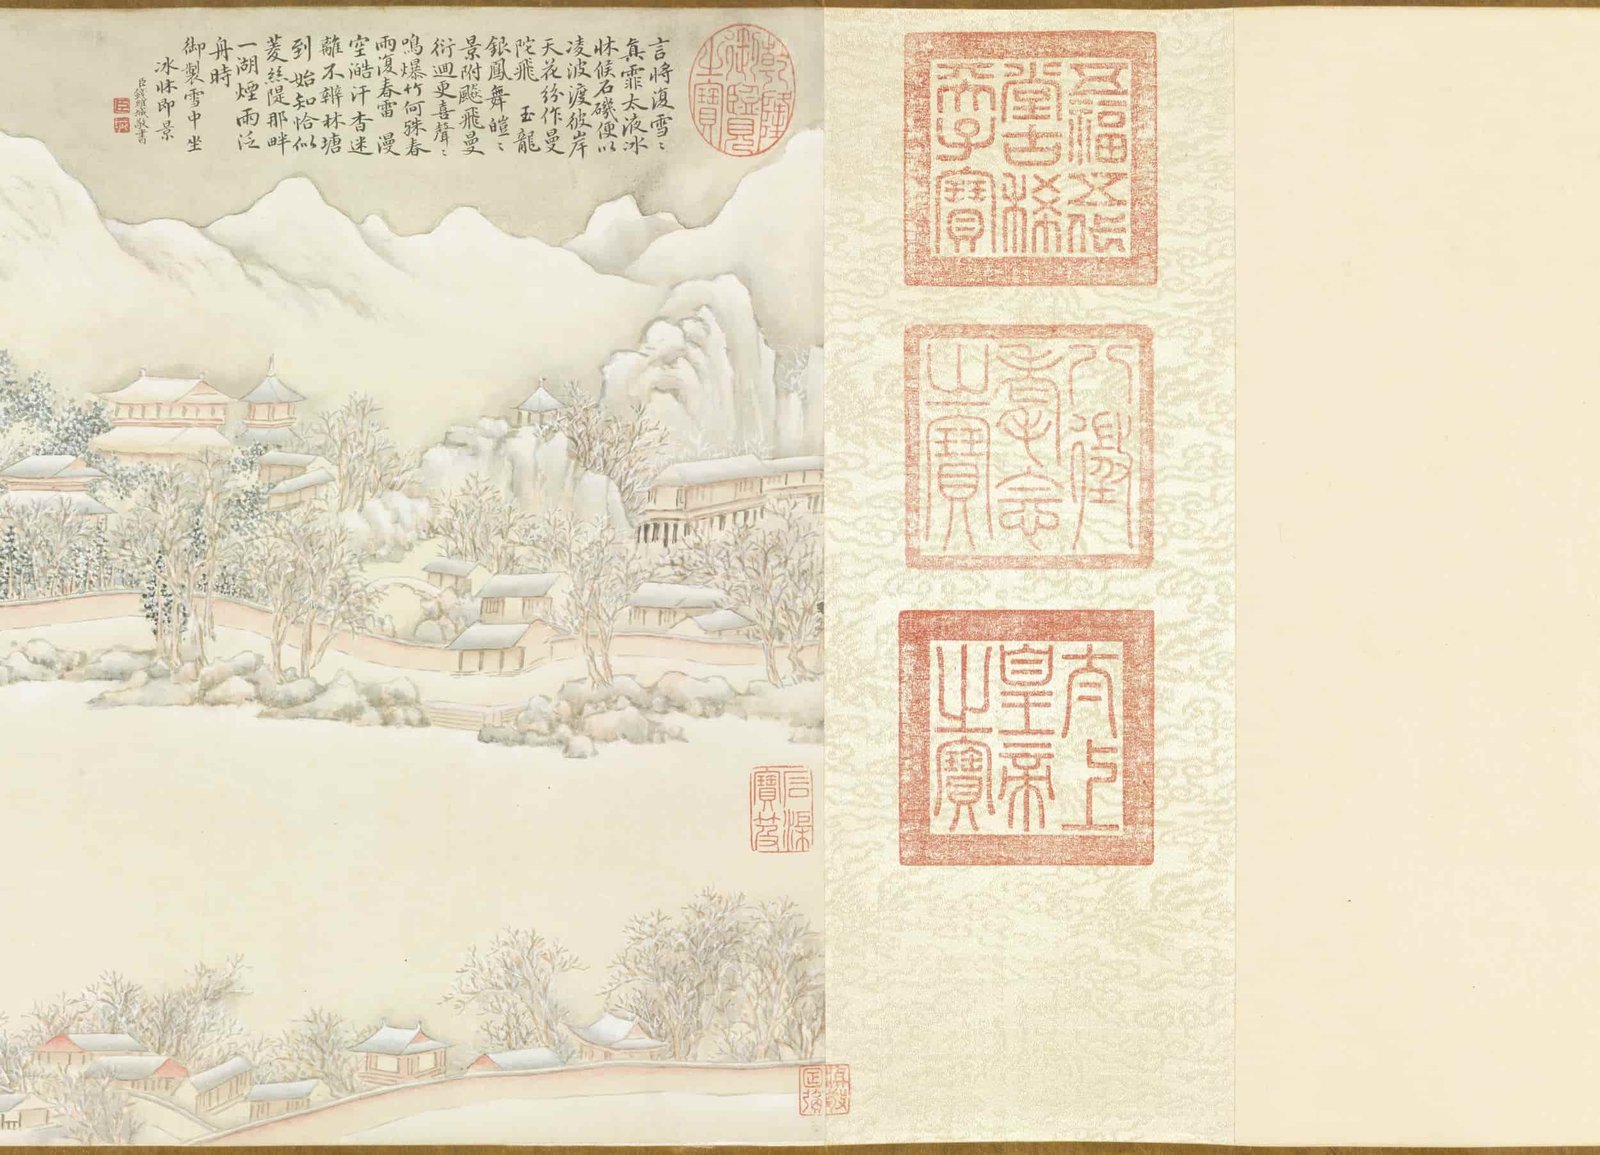 五福五代
堂古稀
天子寶
八徵
耄念
之寶
太上
皇帝
之寶
乾隆御覽之寶
言將復雪〻
真霏太液冰
牀候石磯便以
凌波渡彼岸
天花紛作曼
陀飛 玉龍
銀鳳舞皚〻
景附飈飛曼
衍迴更喜聲〻
鳴爆竹何殊春
雨復春雷 漫
空皓汗杳迷
離不辨林塘
到 始知恰似
菱絲隄那畔
一湖煙雨泛
舟時
御製雪中坐
冰牀即景
臣錢維城敬書
石渠
寶笈